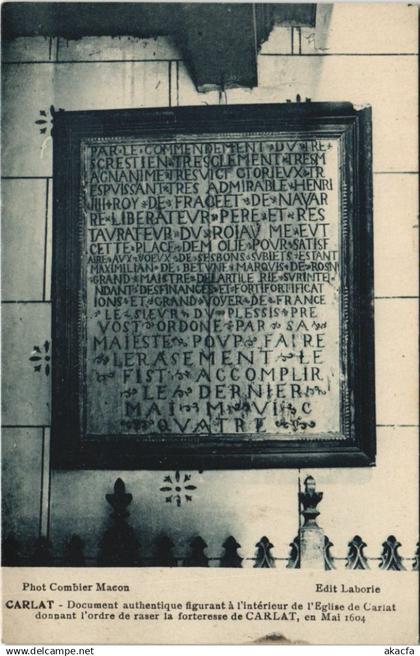 PAR·LE·COMMENDEMENT·DV·TRE
SCRESTIEN·TRESCLEMENT·TRESM
AGNANIME·TRESVICTORIEVX·TR
ESPVISSANT·TRES·ADMIRABLE·HENRI
IIII·ROY·DE·FRANCE·ET·DE·NAVAR
RE·LIBERATEVR·PERE·ET·RES
TAVRATEVR·DV·ROIAVME·EVT
CETTE·PLACE·DEMOLIE·POVR·SATISF
AIRE·AVX·VOEVX·DE·SES·BONS·SVBIETS·ESTANT
MAXIMILIAN·DE·BETVNE·MARQVIS·DE·ROSN
GRAND·MAISTRE·DE·LARTILERIE·SVRINTE
NDANT·DES·FINANCES·ET·FORTIFICAT
IONS·ET·GRAND·VOYER·DE·FRANCE
LE·SIEVR·DV·PLESSIS·PRE
VOST·ORDONE·PAR·SA
MAIESTE·POVR·FAIRE
LERASEMENT·LE
FIST·ACCOMPLIR
LE·DERNIER
MAI·M·VI·C
QVATRE
Phot Combier Macon
Edit Laborie
CARLAT - Document authentique figurant à l'intérieur de l'Eglise de Carlat
donnant l'ordre de raser la forteresse de CARLAT, en Mai 1604
akacfa.com